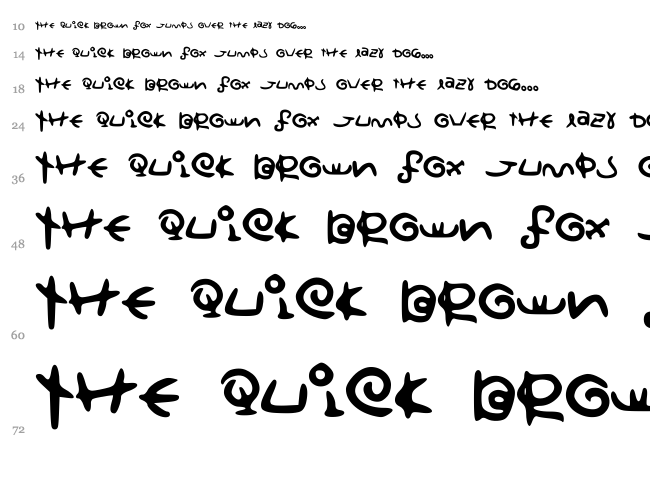 10 THE QUiCK BROWN fOX JUMPS OVER THE lAZY DOG...
14 THE QUiCK BROWN fOX JUMPS OVER THE lAZY DOG...
18 THE QUiCK BROWN fOX JUMPS OVER THE lAZY DOG...
24 THE QUiCK BROWN fOX JUMPS OVER THE lAZY DO
36 THE QUiCK BROWN fOX JUMPS
48 THE QUiCK BROWN fOX
60 THE QUiCK BROWN
72 THE QUiCK BROW